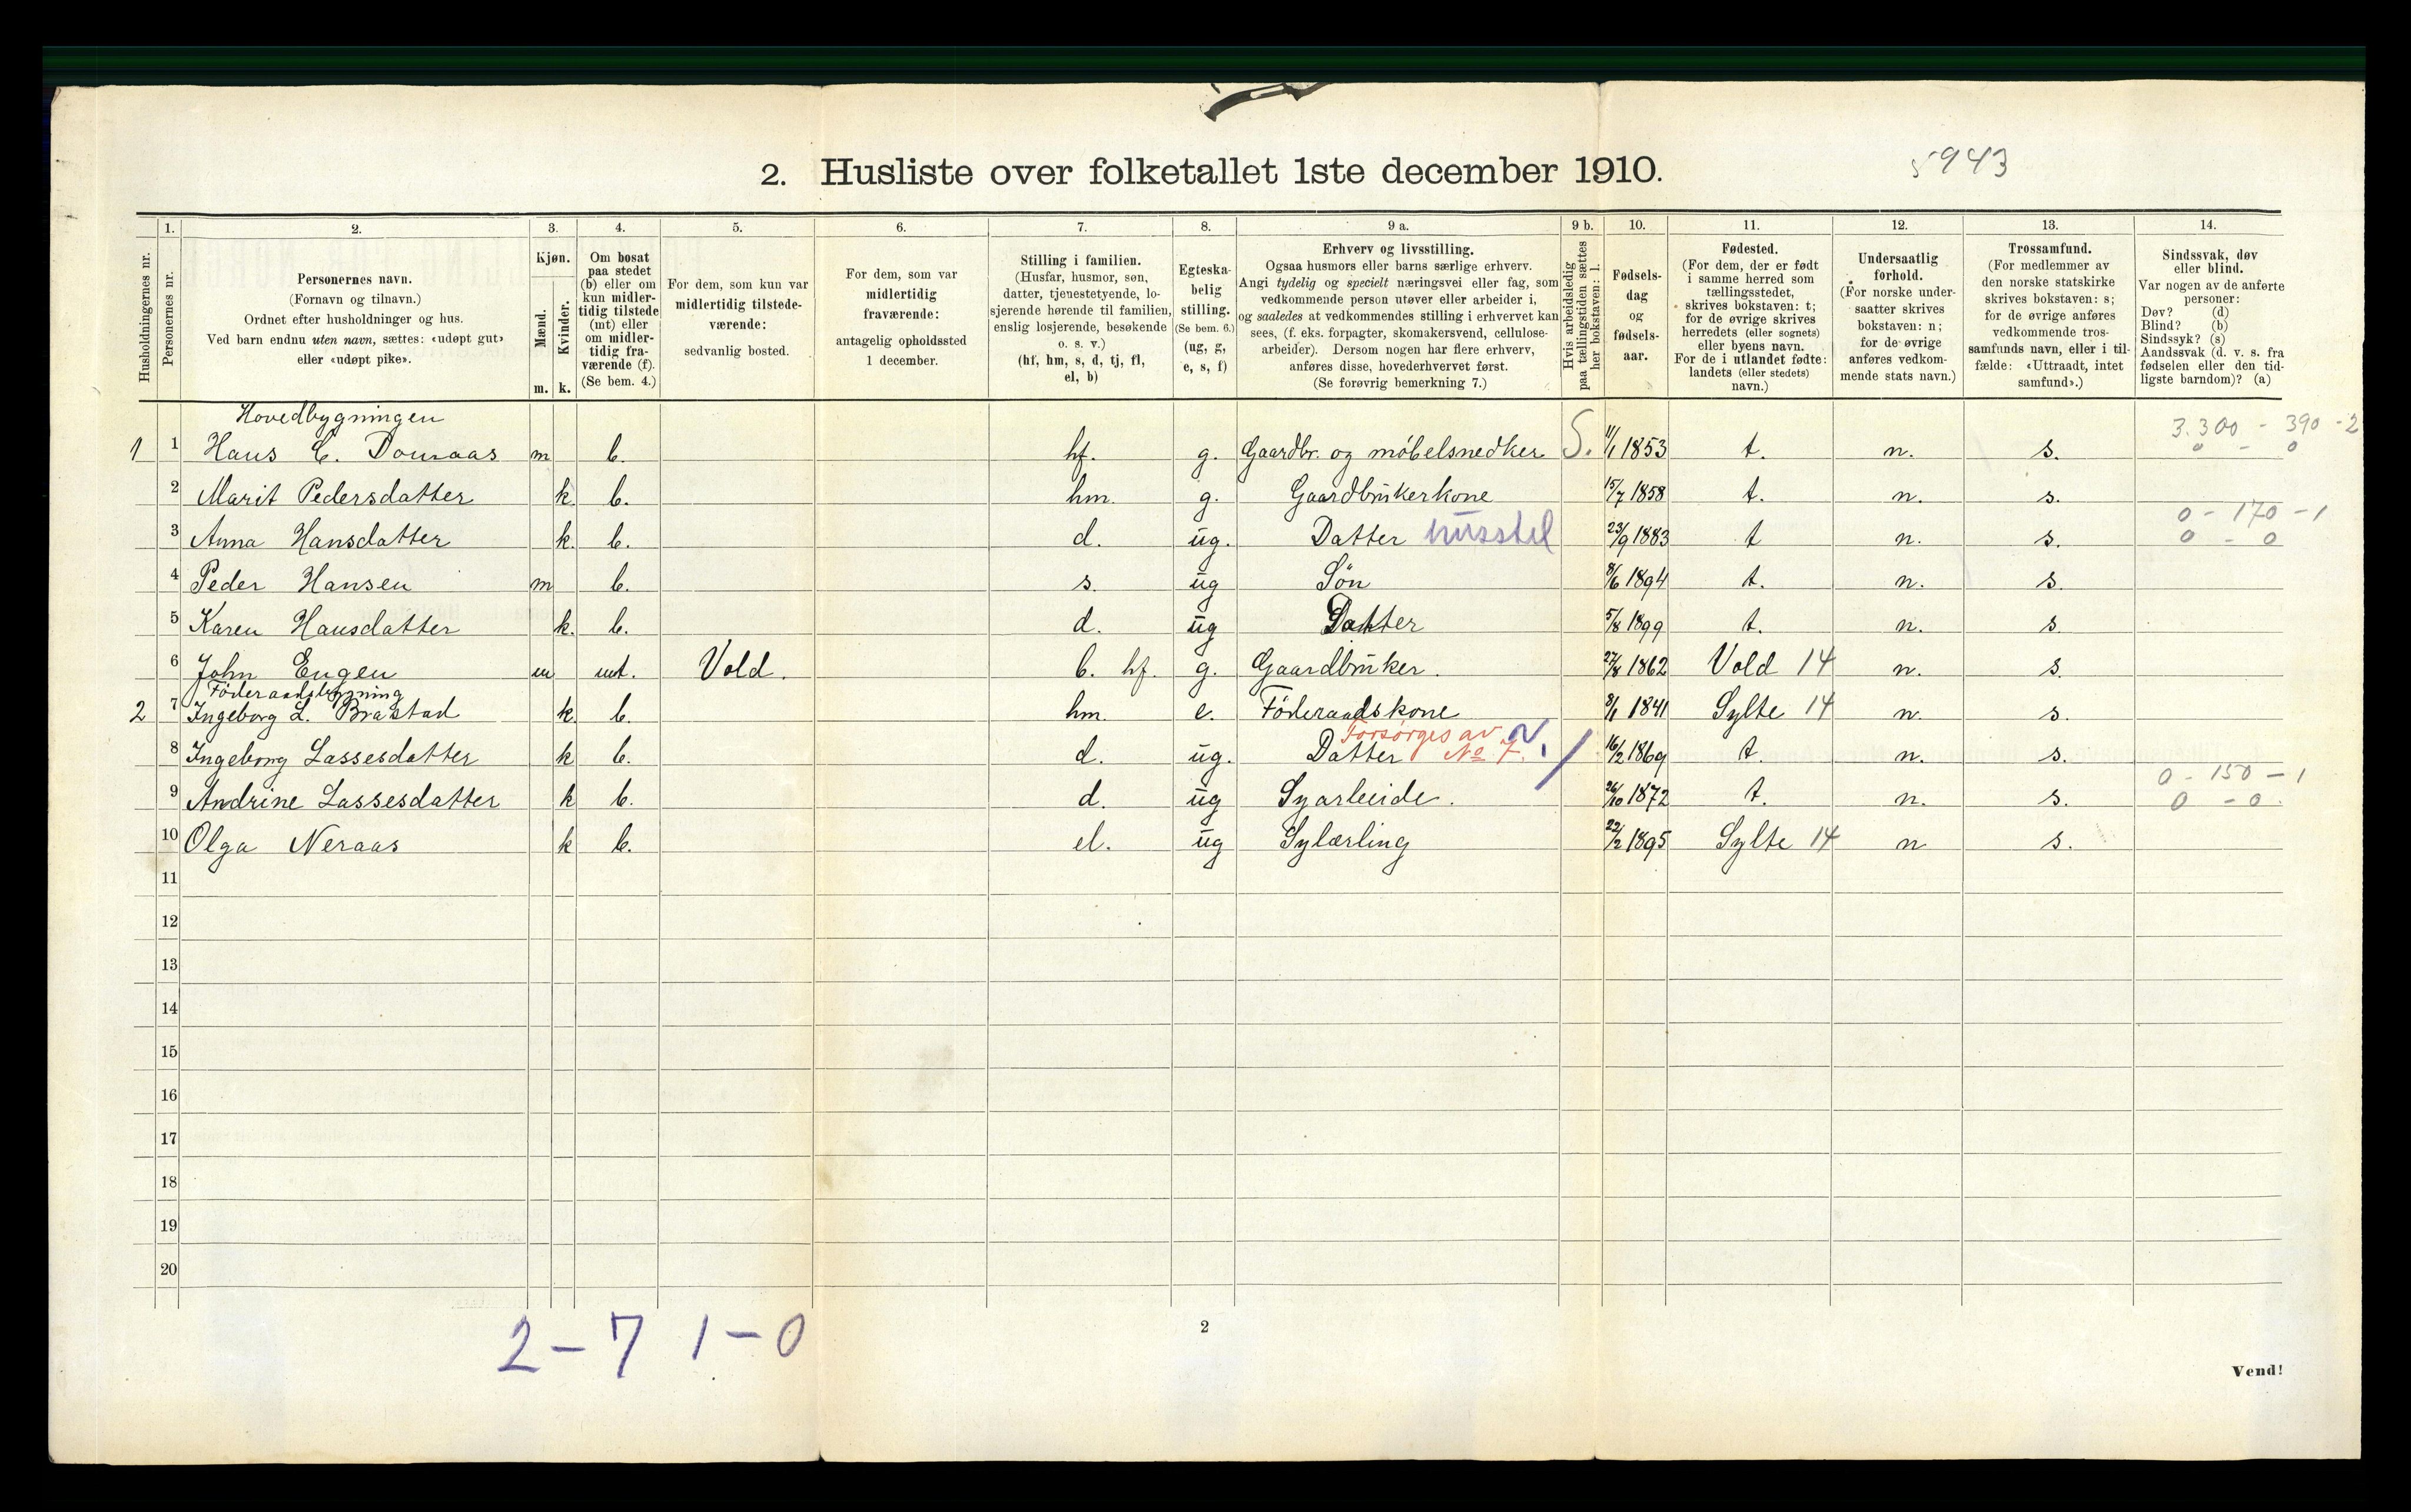 2. Husliste over folketallet 1ste december 1910.
5943
Husholdningernes nr.
1.
Personernes nr.
2.
Personernes navn.
(Fornavn og tilnavn.)
Ordnet efter husholdninger og hus.
Ved barn endnu uten navn, sættes: «udøpt gut»
eller «udøpt pike».
3.
Kjøn.
Mænd.
Kvinder.
m. k.
4.
Om bosat
paa stedet
(b) eller om
kun midler-
tidig tilstede
(mt) eller
om midler-
tidig fra-
værende (f).
(Se bem. 4.)
5.
For dem, som kun var
midlertidig tilstede-
værende:
sedvanlig bosted.
6.
For dem, som var
midlertidig
fraværende:
antagelig opholdssted
1 december.
7.
Stilling i familien.
(Husfar, husmor, søn,
datter, tjenestetyende, lo-
sjerende hørende til familien,
enslig losjerende, besøkende
o. s. v.)
(hf, hm, s, d, tj, fl,
el, b)
8.
Egteska-
belig
stilling.
(Se bem. 6.)
(ug, g,
e, s, f)
9 a.
Erhverv og livsstilling.
Ogsaa husmors eller barns særlige erhverv.
Angi tydelig og specielt næringsvei eller fag, som
vedkommende person utøver eller arbeider i,
og saaledes at vedkommendes stilling i erhvervet kan
sees, (f. eks. forpagter, skomakersvend, cellulose-
arbeider). Dersom nogen har flere erhverv,
anføres disse, hovederhvervet først.
(Se forøvrig bemerkning 7.)
9 b.
Hvis arbeidsledig
paa tællingstiden sættes
her bokstaven: l.
10.
Fødsels-
dag
og
fødsels-
aar.
11.
Fødested.
(For dem, der er født
i samme herred som
tællingsstedet,
skrives bokstaven: t;
for de øvrige skrives
herredets (eller sognets)
eller byens navn.
For de i utlandet fødte:
landets (eller stedets)
navn.)
12.
Undersaatlig
forhold.
(For norske under-
saatter skrives
bokstaven: n;
for de øvrige
anføres vedkom-
mende stats navn.)
13.
Trossamfund.
(For medlemmer av
den norske statskirke
skrives bokstaven: s;
for de øvrige anføres
vedkommende tros-
samfunds navn, eller i til-
fælde: «Uttraadt, intet
samfund».)
14.
Sindssvak, døv
eller blind.
Var nogen av de anførte
personer:
Døv? (d)
Blind? (b)
Sindssyk? (s)
Aandssvak (d. v. s. fra
fødselen eller den tid-
ligste barndom)? (a)
Hovedbygningen
3.300 - 390 - 2
1 1 Hans C. Domaas m b. hf. g. Gaardbr. og møbelsnedker S. 11/1 1853 t. n. s. 0 - 0
2 Marit Pedersdatter k b. hm. g. Gaardbrukerkone 15/7 1858 t. n. s.
0 - 170 - 1
3 Anna Hansdatter k. b. d. ug. Datter husstel 23/9 1883 t n. s. 0 - 0
4 Peder Hansen m b. s. ug Søn 8/6 1894 t. n. s.
5 Karen Hansdatter k. b. d. ug Datter 5/8 1899 t. n. s.
6 John Engen m mt. Vold. b. hf. g. Gaardbruker. 27/8 1862 Vold 14 n. s.
Föderaadsbygning
2 7 Ingeborg L. Brastad k. b. hm. e. Föderaadskone 8/1 1841 Sylte 14 n. s.
Forsørges av
8 Ingeborg Lassesdatter k b. d. ug. Datter No 7. 16/2 1869 t. n. s.
0 - 150 - 1
9 Andrine Lassesdatter k b. d. ug Syarbeide. 26/10 1872 t. n. s. 0 - 0.
10 Olga Neraas k b. el. ug Sylærling 22/2 1895 Sylte 14 n s.
11
12
13
14
15
16
17
18
19
20
2 - 7 1 - 0
2
Vend!